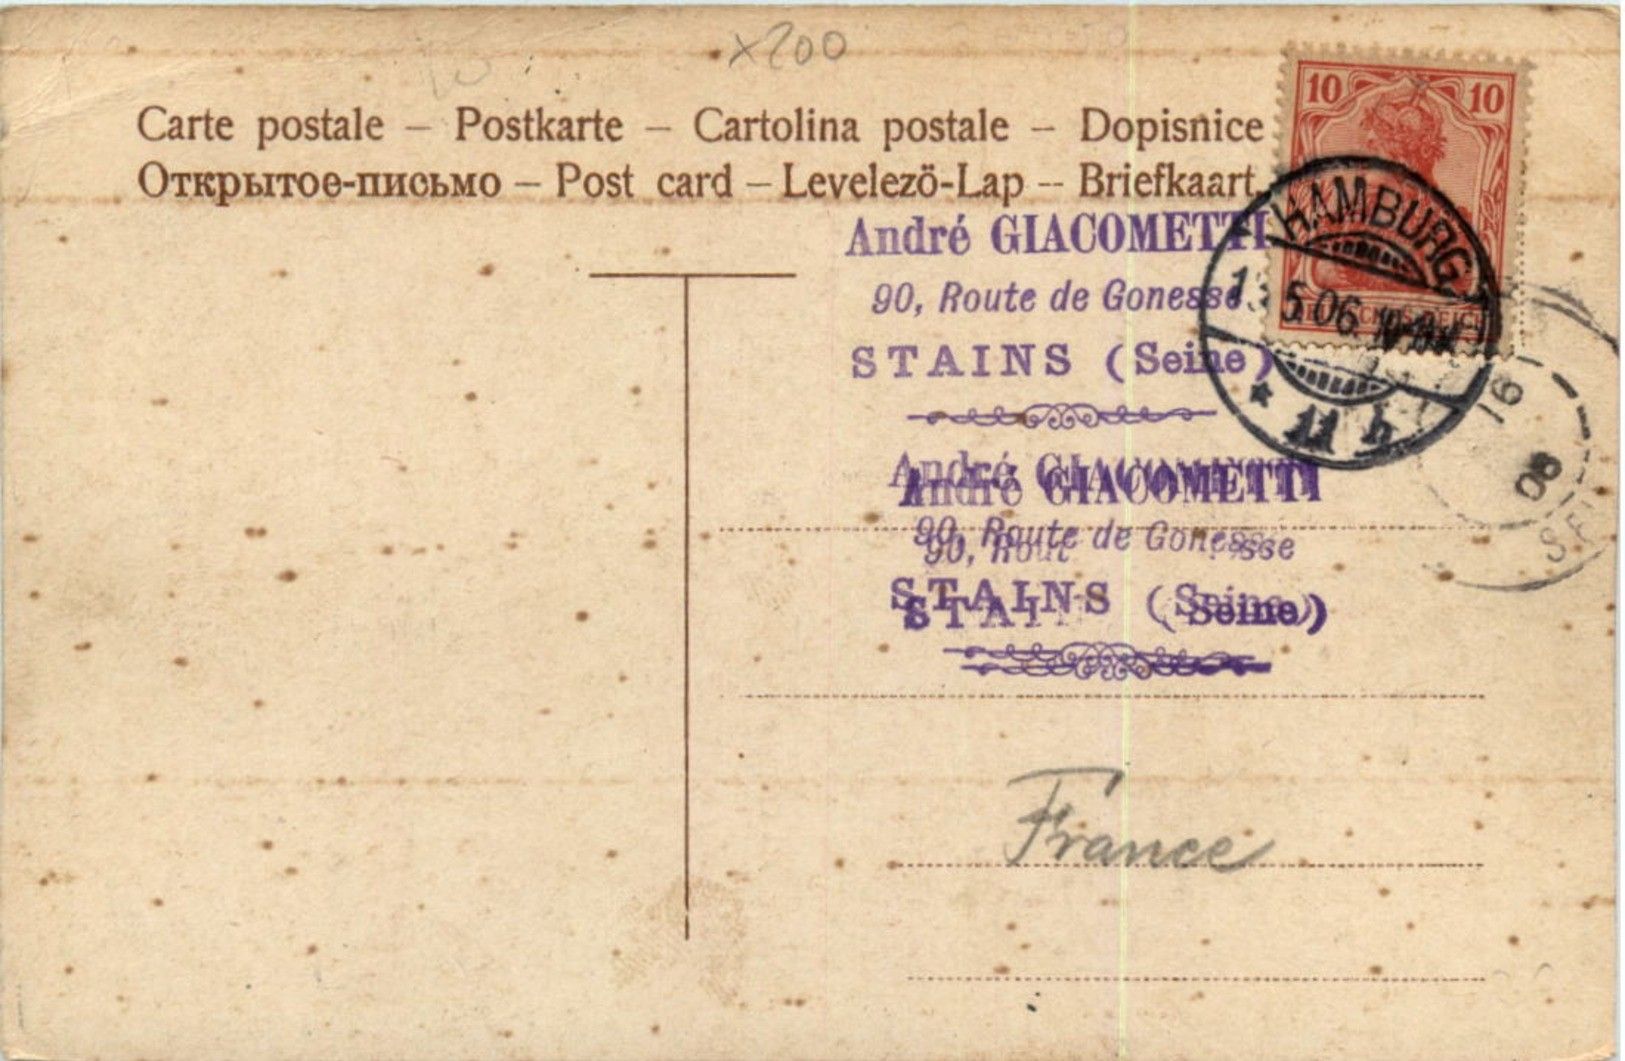 ×200
Carte postale – Postkarte – Cartolina postale – Dopisnice
Открытое-письмо – Post card – Levelező-Lap – Briefkaart.
10 10
DEUTSCHES REICH
HAMBURG
13.5.06. 10-11
* 11 h
16
06
SEI
André GIACOMETTI
90, Route de Gonesse
STAINS (Seine)
André GIACOMETTI
André GIACOMETTI
90, Route de Gonesse
90, Rout sse
STAINS (Seine)
STAINS (Seine)
France